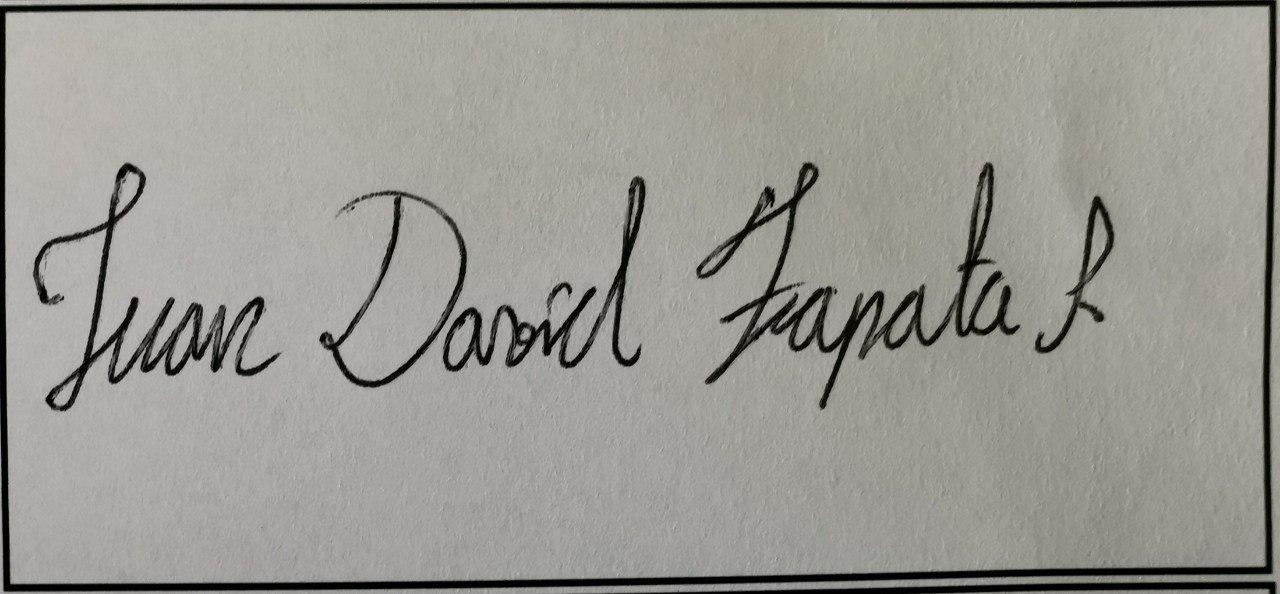 Juan David Zapata R